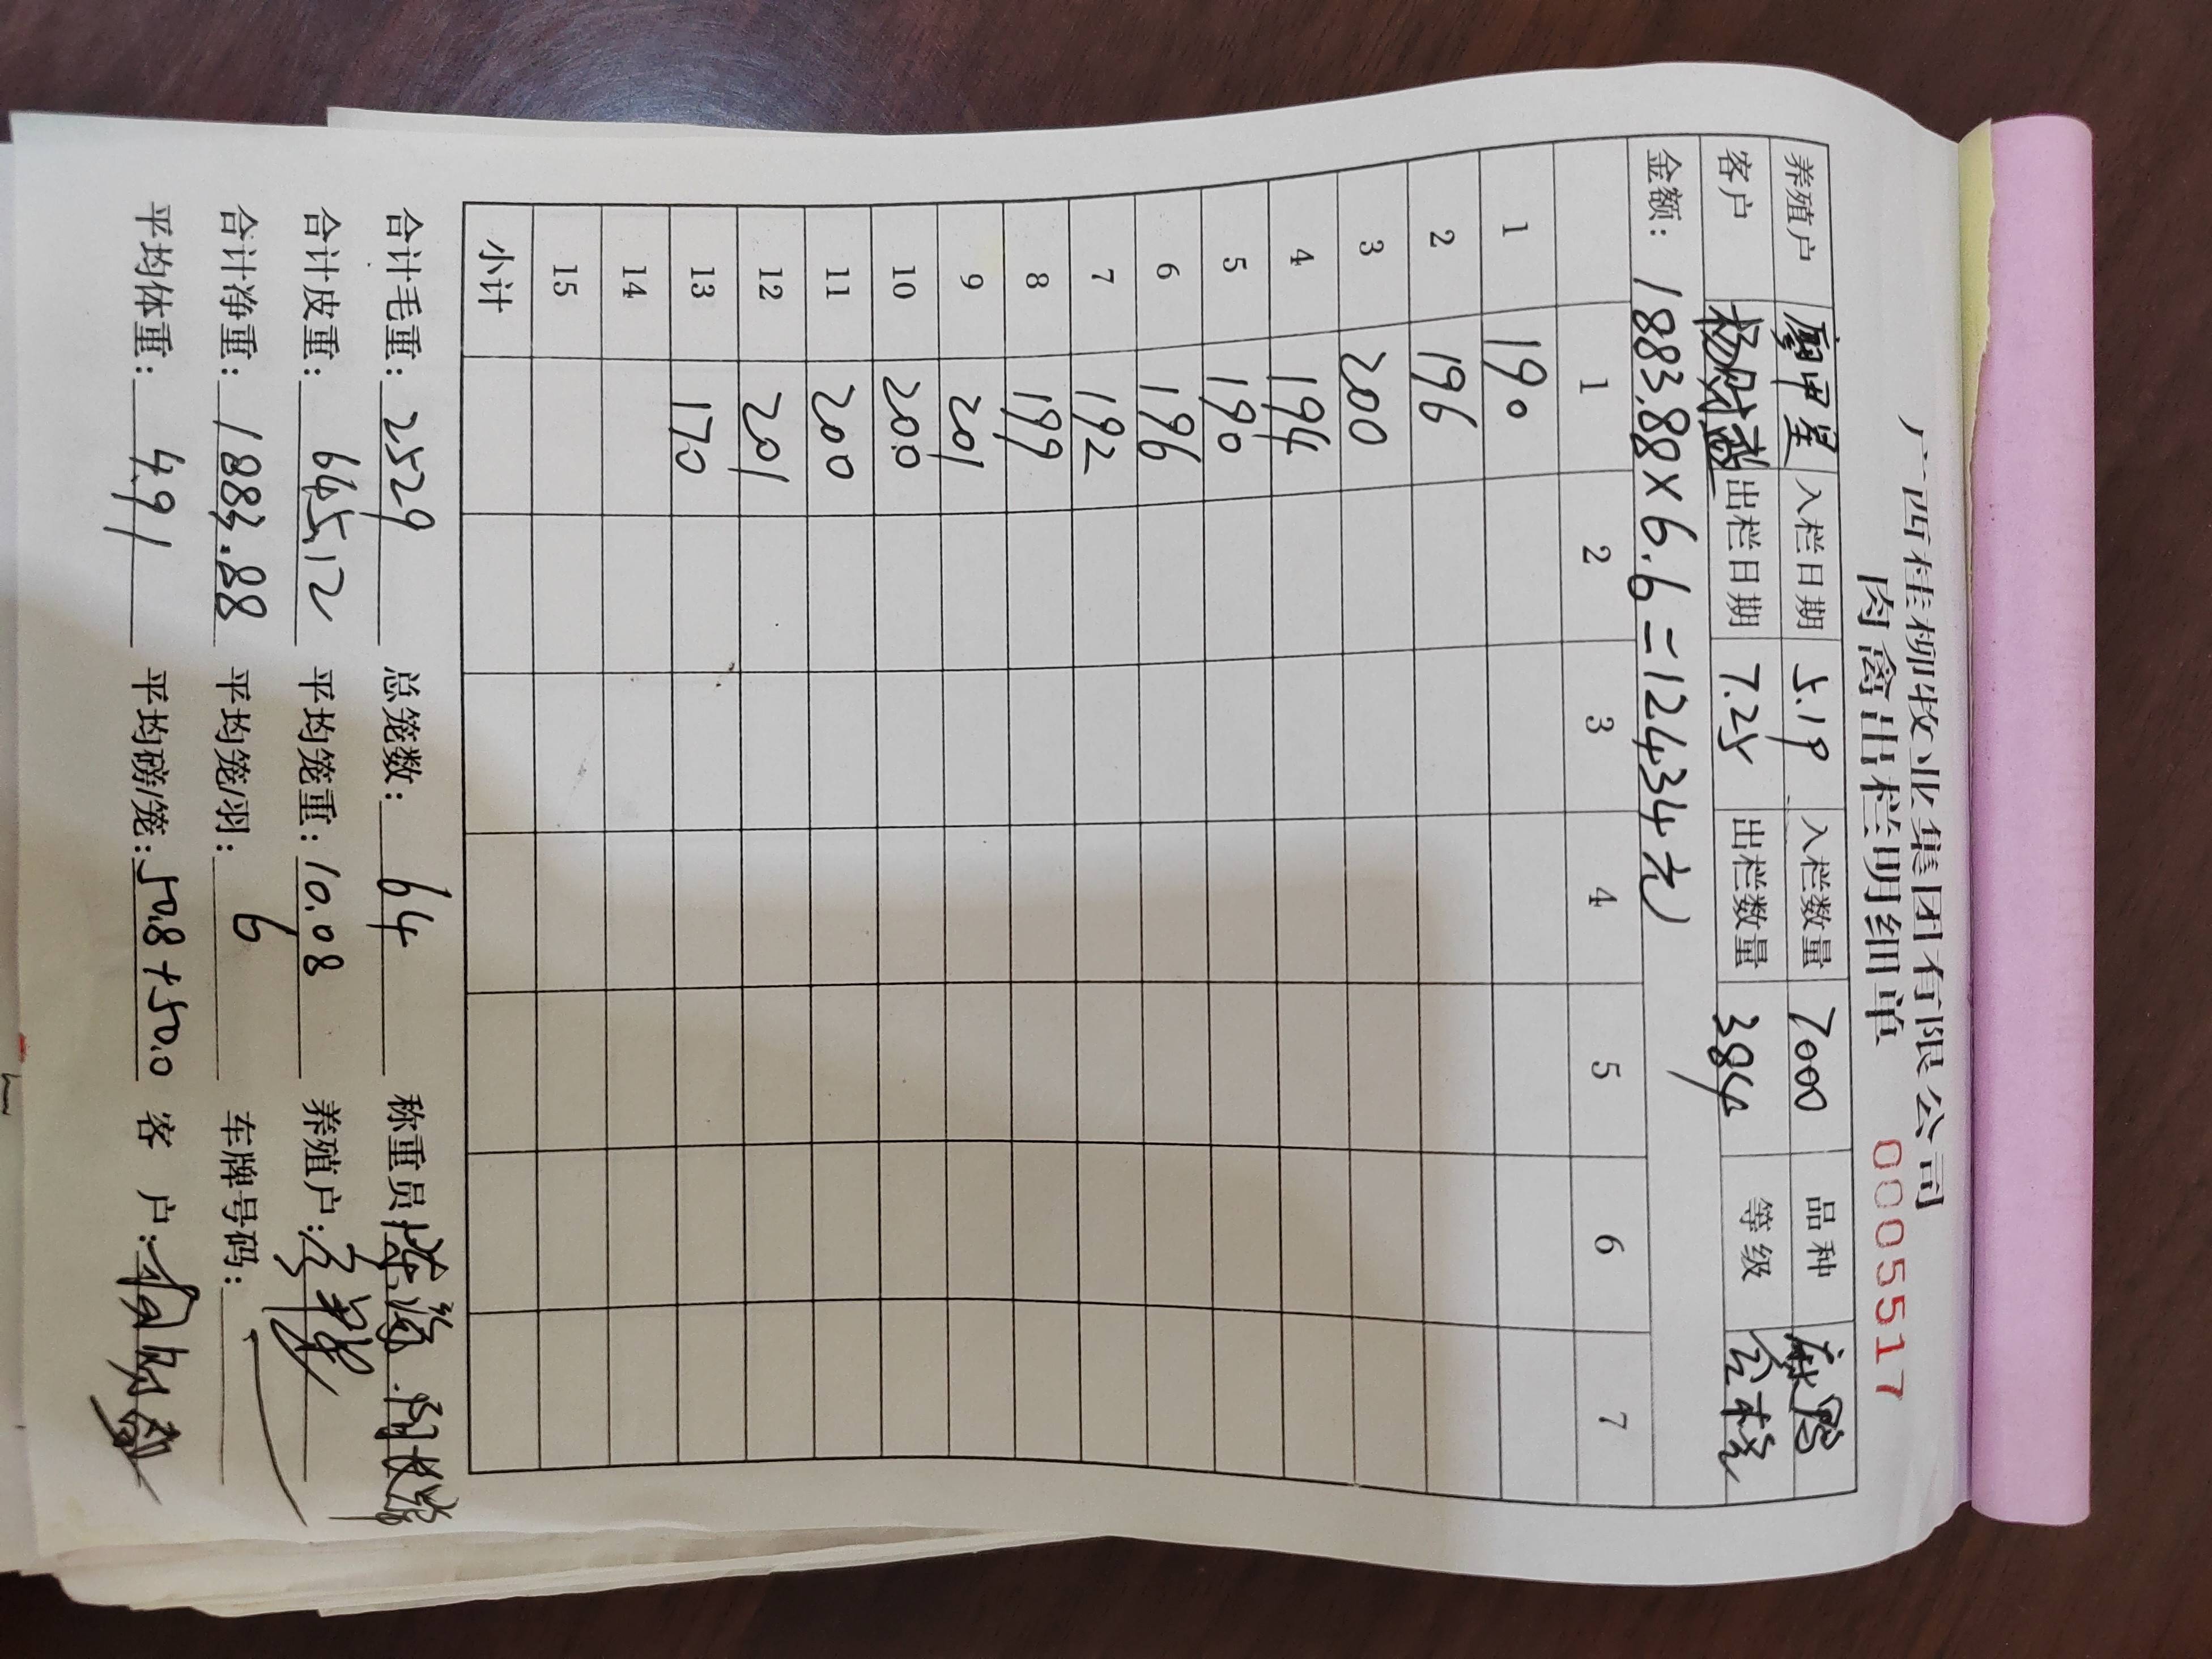 广西桂柳牧业集团有限公司
肉禽出栏明细单 0005517
养殖户 廖甲星 入栏日期 5.19 入栏数量 7000 品种 麻鸭
客户 杨财 出栏日期 7.25 出栏数量 384 等级
金额: 1883.88×6.6=12434元
1 2 3 4 5 6 7
1 190
2 196
3 200
4 194
5 190
6 196
7 192
8 199
9 201
10 200
11 200
12 201
13 170
14
15
小计
合计毛重: 2529 总笼数: 64 称重员
合计皮重: 645.12 平均笼重: 10.08 养殖户:
合计净重: 1883.88 平均笼/羽: 6 车牌号码:
平均体重: 4.91 平均磅/笼: 50.8+50.0 客 户: